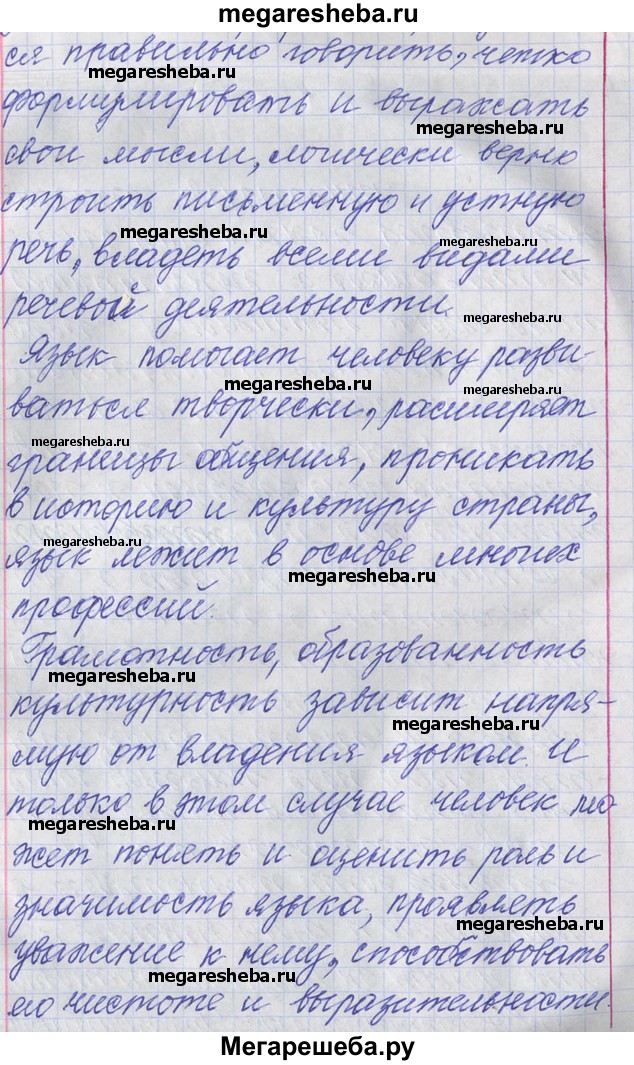 megaresheba.ru
ся правильно говорить, четко
megaresheba.ru
формулировать и выражать
megaresheba.ru
свои мысли, логически верно
строить письменную и устную
megaresheba.ru
речь, владеть всеми видами
megaresheba.ru
речевой деятельности.
megaresheba.ru
Язык помогает человеку разви-
megaresheba.ru
megaresheba.ru
ваться творчески, расширяет
megaresheba.ru
границы общения, проникать
в историю и культуру страны,
megaresheba.ru
язык лежит в основе многих
megaresheba.ru
профессий.
Грамотность, образованность
megaresheba.ru
культурность зависит напря-
megaresheba.ru
мую от владения языком. И
только в этом случае человек мо-
megaresheba.ru
жет понять и оценить роль и
значимость языка, проявлять
megaresheba.ru
уважение к нему, способствовать
megaresheba.ru
его чистоте и выразительности.
Мегарешеба.ру